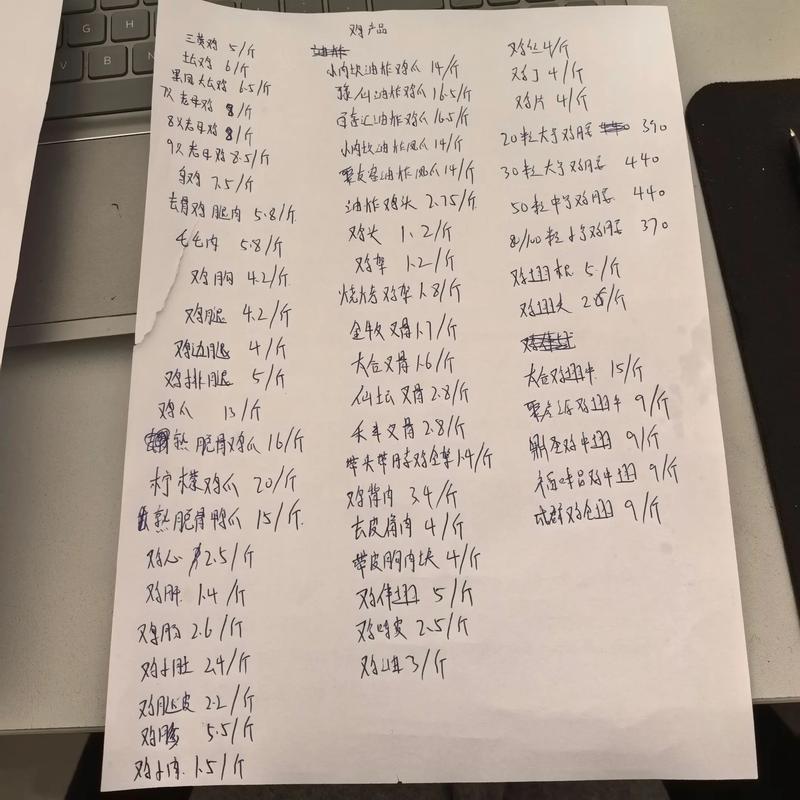 鸡产品
三黄鸡 5/斤
土鸡 6/斤
果园大土鸡 6.5/斤
7只老母鸡 8/斤
8只老母鸡 8/斤
9只老母鸡 8.5/斤
鸡 7.5/斤
去骨鸡腿肉 5.8/斤
毛毛肉 5.8/斤
鸡胸 4.2/斤
鸡腿 4.2/斤
鸡边腿 4/斤
鸡排腿 5/斤
鸡爪 13/斤
熟脱骨鸡爪 16/斤
柠檬鸡爪 20/斤
熟脱骨鸭爪 15/斤
鸡心 2.5/斤
鸡肝 1.4/斤
鸡肠 2.6/斤
鸡小肚 2.4/斤
鸡腿皮 2.2/斤
鸡 5.5/斤
鸡小肉 1.5/斤
油炸鸡爪 14/斤
油炸鸡爪 16.5/斤
油炸鸡爪 16.5/斤
油炸凤爪 14/斤
油炸凤爪 14/斤
油炸鸡头 2.75/斤
鸡头 1.2/斤
鸡架 1.2/斤
烧烤鸡架 1.8/斤
叉骨 1.7/斤
大合叉骨 1.6/斤
仙坛叉骨 2.8/斤
禾丰叉骨 2.8/斤
带头带脖鸡全架 1.4/斤
鸡背肉 3.4/斤
去皮肩肉 4/斤
带皮胸肉块 4/斤
鸡伴翅 5/斤
鸡皮 2.5/斤
鸡 3/斤
鸡丝 4/斤
鸡丁 4/斤
鸡片 4/斤
20粒大字鸡腰 390
30粒大字鸡腰 440
50粒中字鸡腰 440
80/100粒小字鸡腰 370
鸡翅根 5/斤
鸡翅尖 /斤
大合鸡翅中 15/斤
鸡翅中 9/斤
鸡中翅 9/斤
品鸡中翅 9/斤
鸡全翅 9/斤